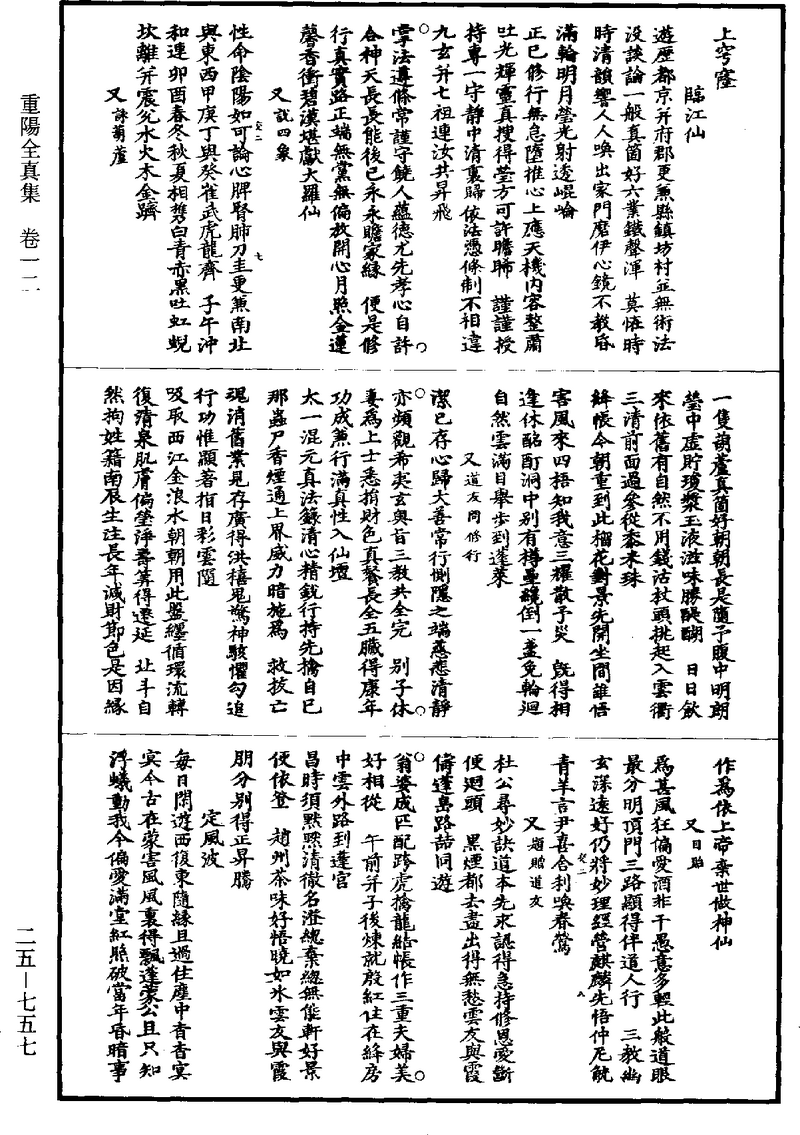 重陽全真集　卷一二
二五—七五七
上穹窿
臨江仙
遊歷都京并府郡更兼縣鎮坊村並無術法
没談論一般真箇好六業鐵聲渾　莫恠時
時清韻響人人喚出家門磨伊心鏡不教昏
滿輪明月瑩光射透崐崘
正已修行無怠墮推心上應天機内容整肅
吐光輝靈真搜得瑩方可許瞻晞　謹謹授
持專一守靜中清裏歸依法憑條制不相違
九玄并七祖連汝共昇飛
掌法遵條常謹守饒人蘊德尤先孝心自許
合神天長長能後已永永贍家緣　便是修
行真實路正端無黨無偏放開心月照金蓮
馨香衝碧漢堪獻大羅仙
又說四象
性命陰陽如可論心脾腎肺刀圭更兼南北
與東西甲庚丁與癸雀武虎龍齊　子午沖
和連卯酉春冬秋夏相擕白青赤黑吐虹蜺
坎離并震兌水火木金躋
又詠葫蘆
一隻葫蘆真箇好朝朝長是隨予腹中明朗
瑩中虛貯瓊漿玉液滋味勝醍醐　日日飲
來依舊有自然不用錢沽杖頭挑起入雲衢
三清前面過參從黍米珠
絳帳今朝重到此榴花對景先開坐間誰悟
客風來四梧知我意三耀散予災　旣得相
逢休酩酊洞中别有樽罍緩倒一盞免輪迴
自然雲滿目舉步到蓬萊
又道友問修行
潔已存心歸大善常行惻隱之端慈悲清靜
亦頻觀希夷玄奥旨三教共全完　别子休
妻為上士悉捐財色真餐長全五臟得康年
功成兼行滿真性入仙壇
太一混元真法籙清心精銳行持先擒自巳
那蟲尸香煙通上界威力暗施為　救拔亡
魂消舊業見存廣得洪禧鬼驚神駭懼勾追
行功惟顯著指日彩雲隨
吸取西江金浪水朝朝用此盤纒循環流轉
復清泉肌膚偏瑩淨壽筭得遷延　北斗自
然拘姓籍南辰生注長年減財節色是因緣
作為依上帝棄世做神仙
又日貽
為甚風狂偏愛酒非干愚意多輕此般道眼
最分明頂門三路顯得伴道人行　三教幽
玄深遠好仍將妙理經營麒麟先悟仲尼觥
青羊言尹喜合利喚春鶯
又趙貽道友
杜公尋妙訣道本先求認得急持修恩愛斷
便迴頭　黑煙都去盡出得無愁雲友與霞
儔蓬島路喆同遊
翁婆成匹配跨虎擒龍結帳作三重夫婦美
好相從　午前并子後煉就殷紅住在絳房
中雲外路到蓬宮
昌時須黙黙清徹名澄緦棄緦無能軒好景
便依登　趙州茶味好悟曉如氷雲友與霞
朋分别得正昇騰
定風波
每日閑遊西復東隨緣且過住塵中杳杳㝠
㝠今古在蒙害風風裏得飄蓬蒙公且只知
浮蟻動我今偏愛滿堂紅照破當年昏暗事